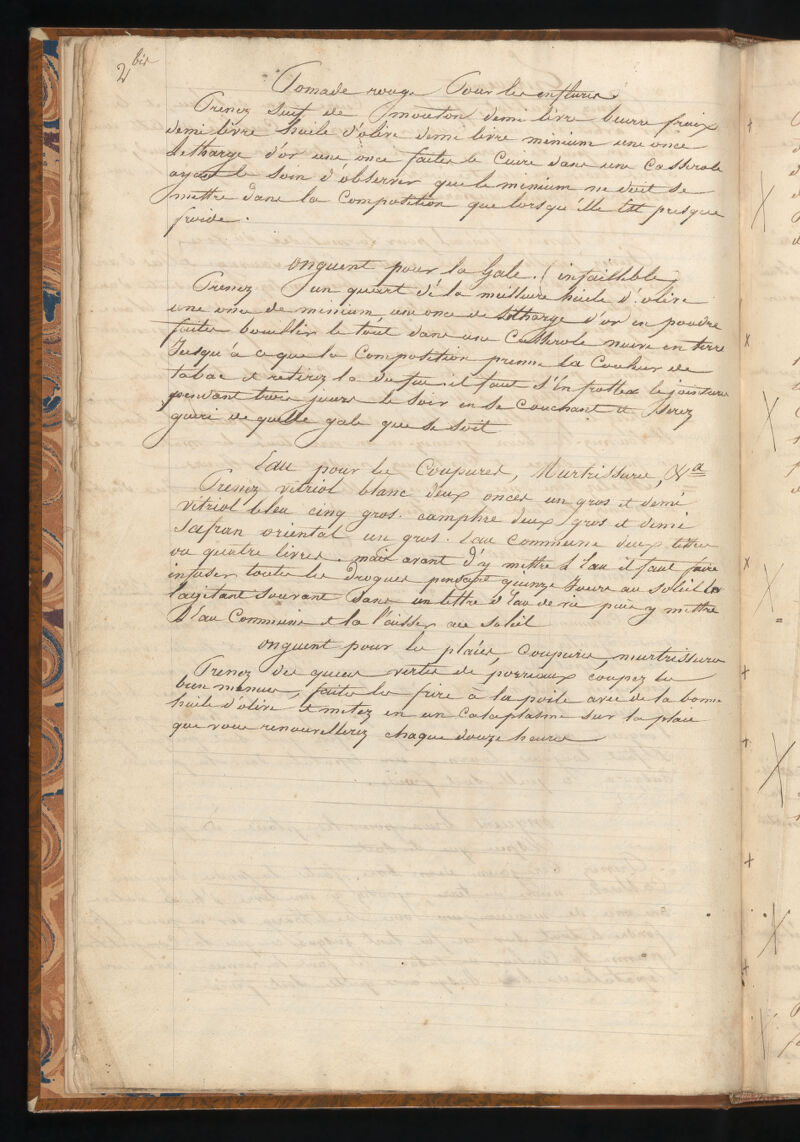 2 bis
Pomade rouge Pour les enflures
Prenez suif de mouton demi livre beurre fraix
demi livre huile d'olive demi livre minium une once
Letharge d'or une once faites le Cuire dans une Casserole
ayant le soin d'observer que le minium ne doit se
mettre dans la Composition que lorsqu'elle Est presque
froide.
onguent pour la Gale. (infaillible)
Prenez un quart de la meilleure huile d'olive
une once de minium, une once de Letharge d'or en poudre
faites bouillir le tout dans une Casserole neuve en terre
Jusqu'à ce que la Composition prenne la Couleur de
tabac et retirez la du feu il faut s'en frotter les jointures
pendant trois jours le soir en se Couchant et serez
gueri de quelle gale que se soit
Eau pour les Coupures, Murtrissures, &a
Prenez vitriol blanc deux onces un gros et demi
vitriol bleu cinq gros. camphre deux gros et demi
safran oriental un gros. Eau Commune deux littres
ou quatre livres. mais avant d'y mettre L'Eau il faut faire
infuser toutes les Drogues pendant quinze Jours au soleil En
l'agitant souvant dans un littre d'Eau de vie puis y mettre
L'Eau Commune et la laisser au soleil
onguent pour les plaies, Coupures, murtrissures
Prenez des queues vertes de porreaux coupez les
bien menues, faites les frire à la poile avec de la bonne
huile d'olive et metez en un Cataplasme sur la plaie
que vous renouvellerez chaque douze heures